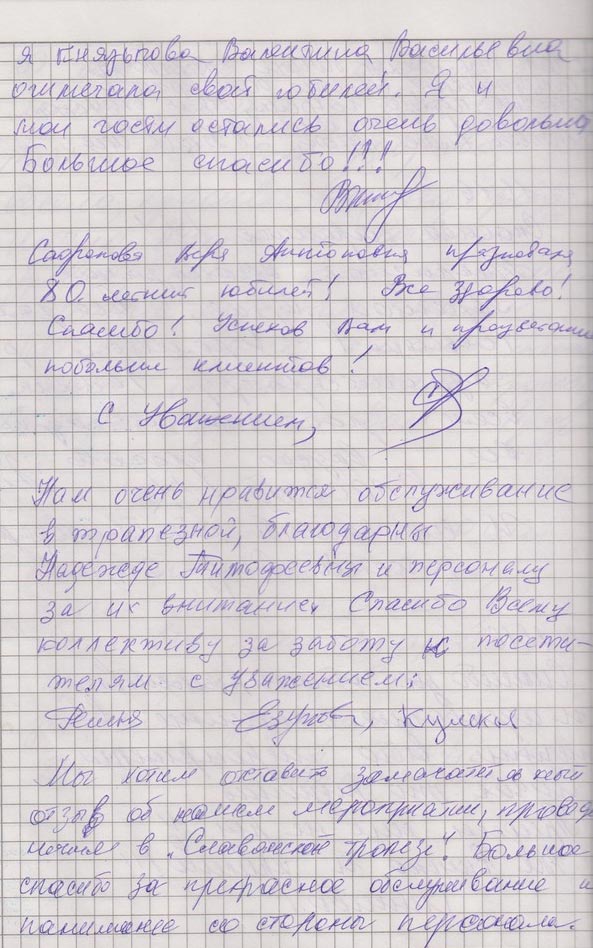 Я Князькова Валентина Васильевна
отмечала свой юбилей. Я и
мои гости остались очень довольны
Большое спасибо!!!
Сафронова Вера Антоновна праздновала
80 летний юбилей! Все здорово!
Спасибо! Успехов Вам и процветания
побольше клиентов!
С Уважением,
Нам очень нравится обслуживание
в трапезной, благодарны
Надежде Тимофеевны и персоналу
за их внимание. Спасибо Всему
коллективу за заботу к посети-
телям с уважением:
Мы хотим оставить замечательный
отзыв об нашем мероприятии, провод
ном в "Славянской трапезе". Большое
спасибо за прекрасное обслуживание и
понимание со стороны персонала.